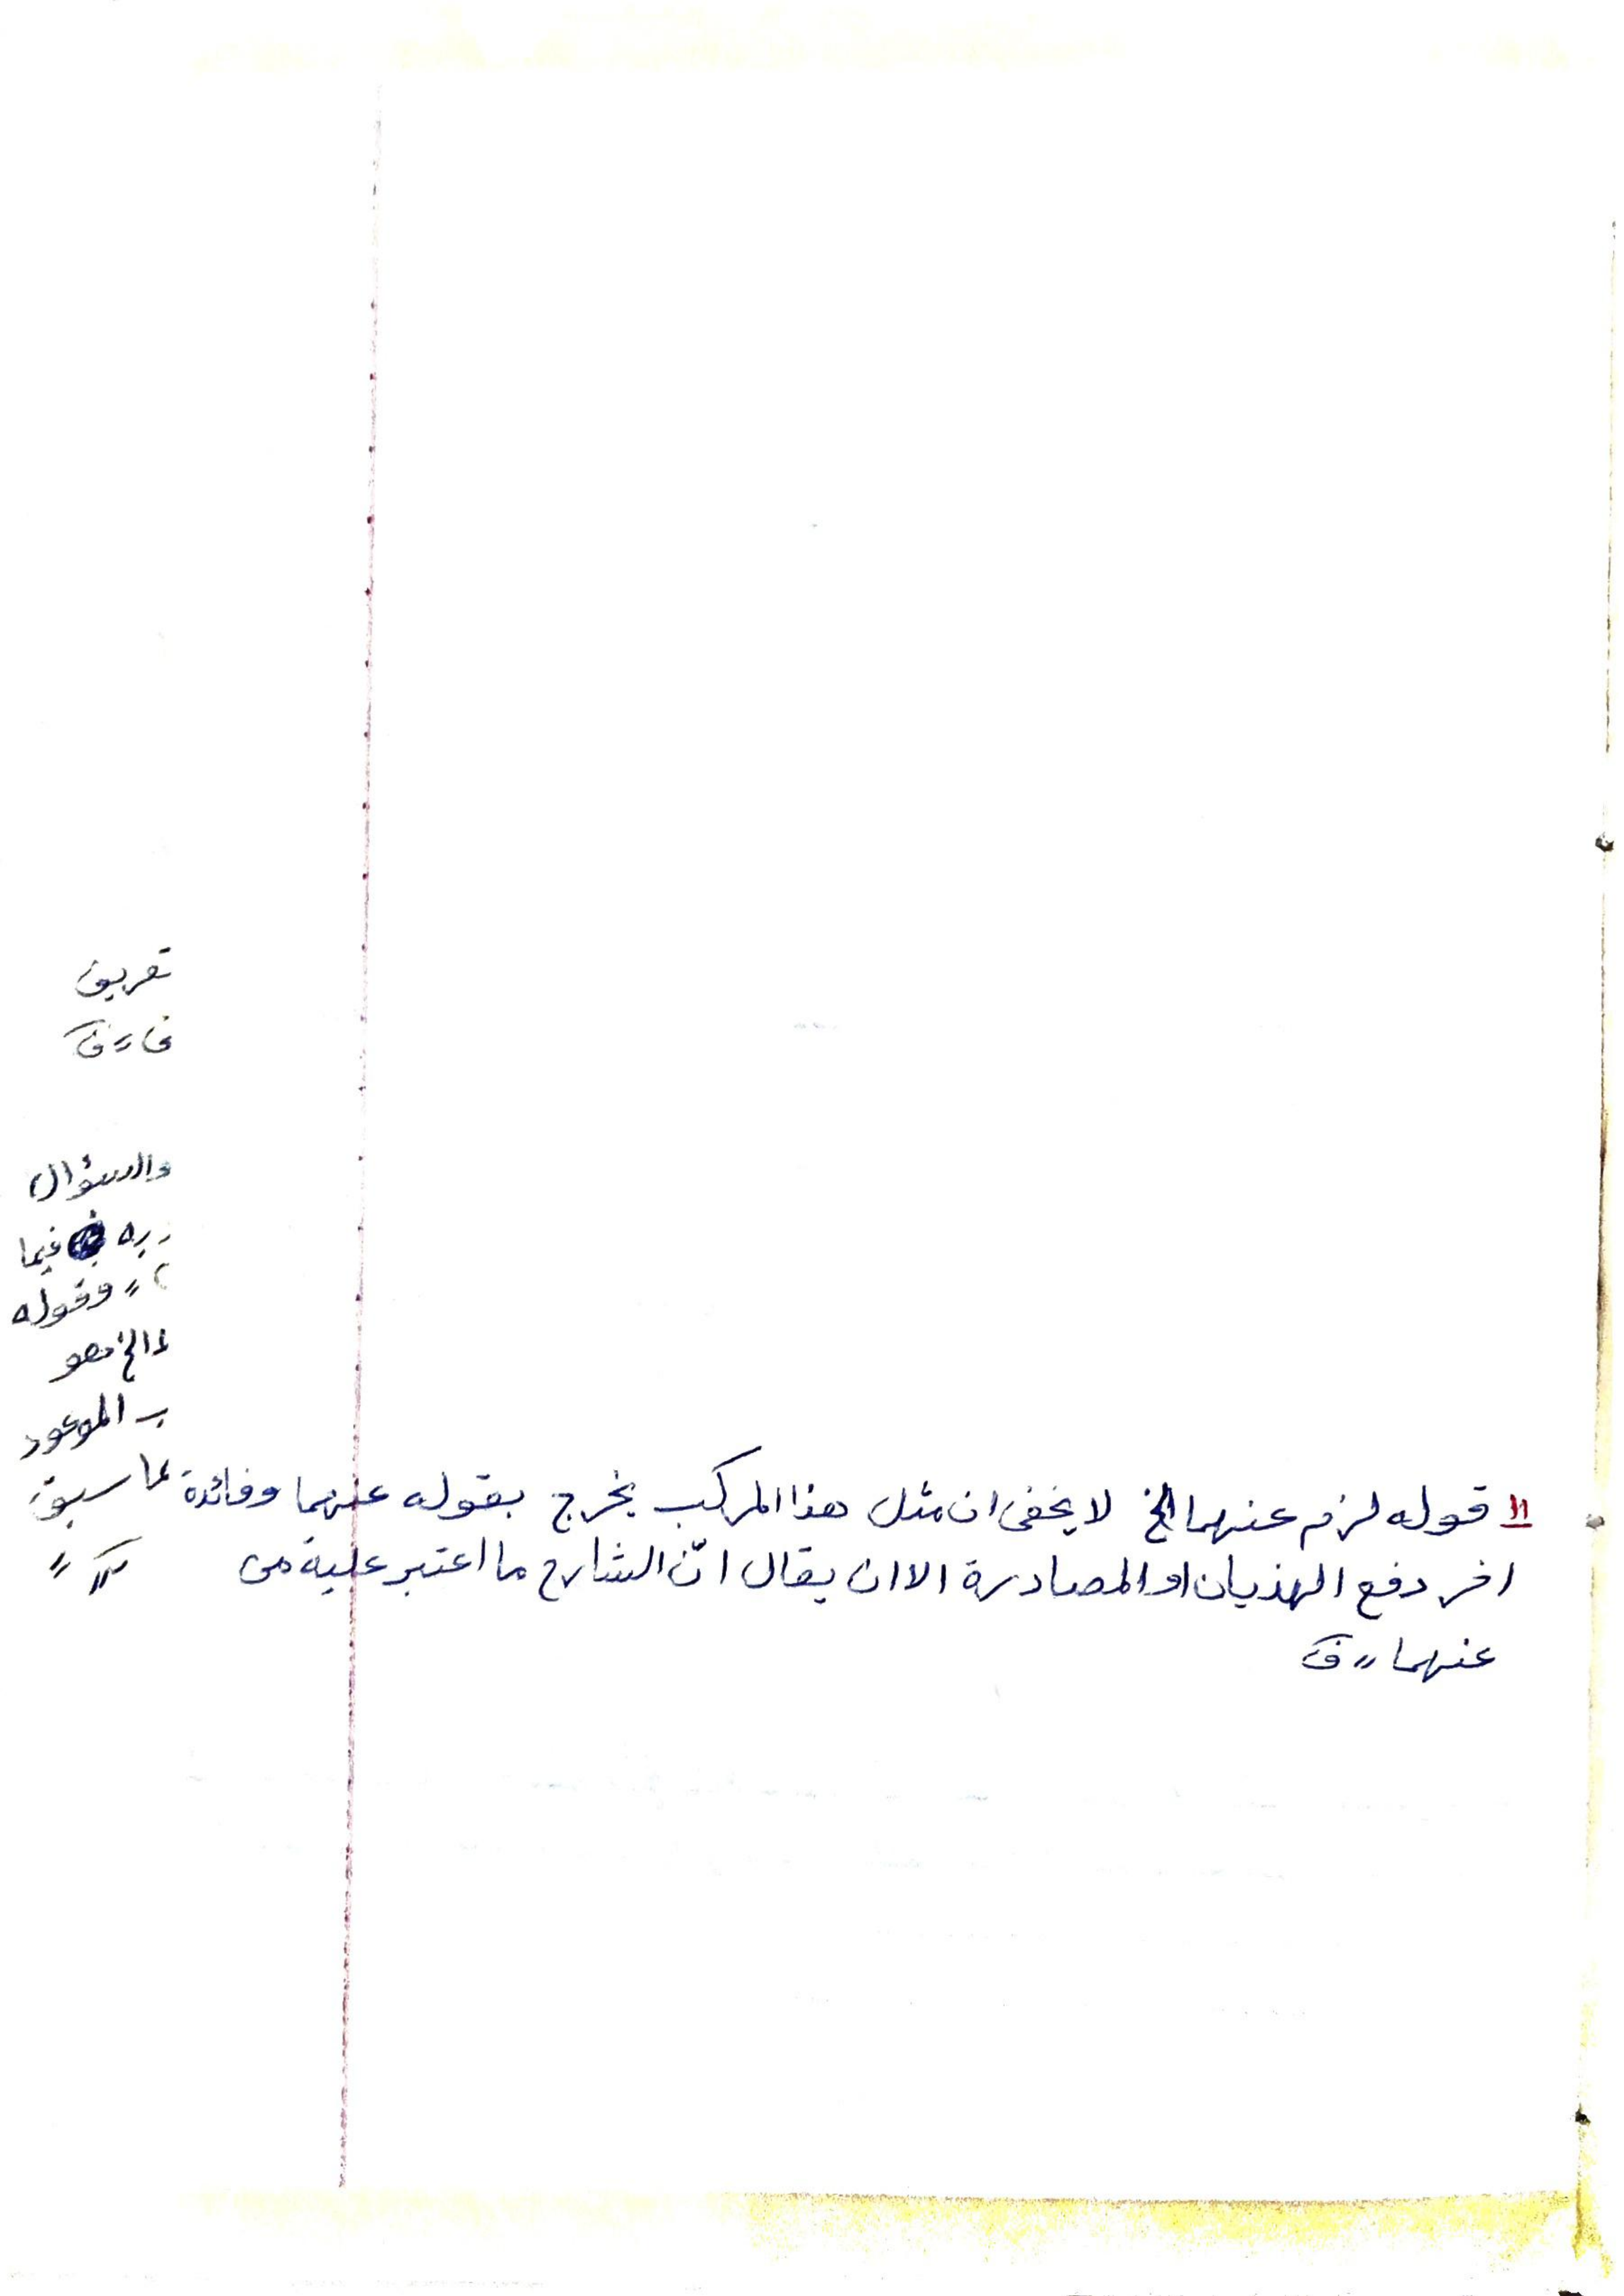 تعريف
والسؤال
فيما
وقوله
الخ فهو
الموعود
١١ قوله لزم عنهما الخ لا يخفى ان مثل هذا المركب يخرج بقوله عنهما وفائدة
اخر دفع الهذيان او المصادرة الا ان يقال انّ الشارح ما اعتبر علية من
عنهما ⸗ ف
سبق